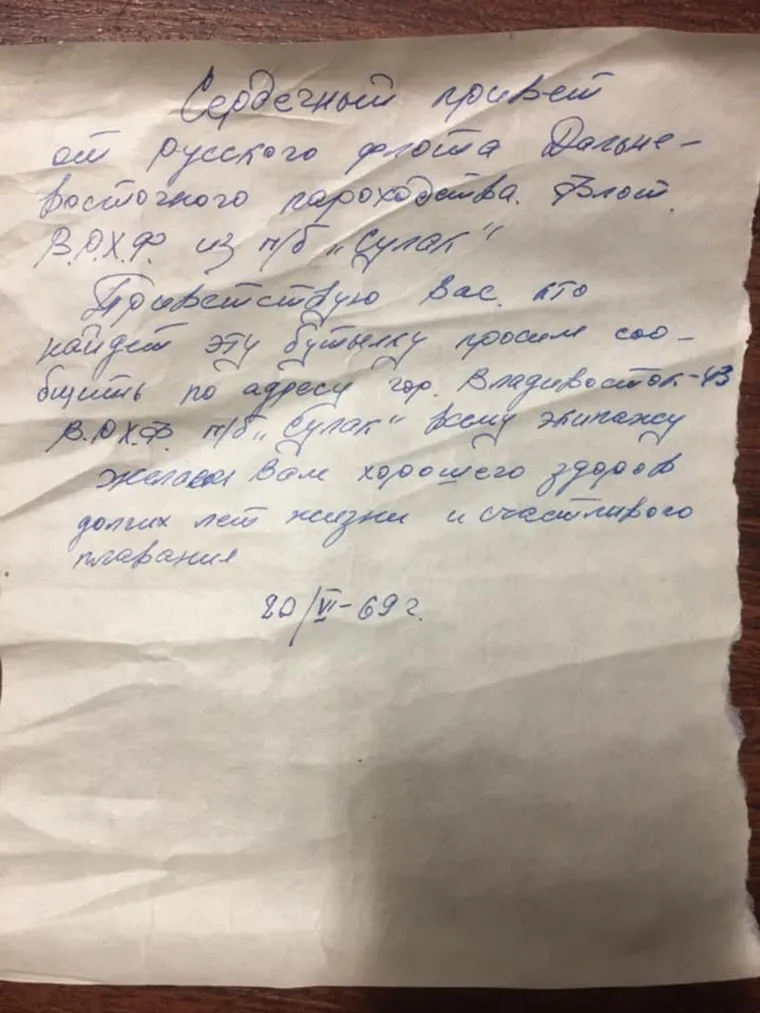 Сердечный привет
от русского флота Дальне-
восточного пароходства. Флот.
В.О.Х.Ф. из п/б „Сулак"
Приветствую Вас. кто
найдет эту бутылку просим соо-
бщить по адресу гор. Владивосток-43
В.О.Х.Ф. п/б „Сулак" всему экипажу
желаем Вам хорошего здоров
долгих лет жизни и счастливого
плавания
20/VI-69 г.